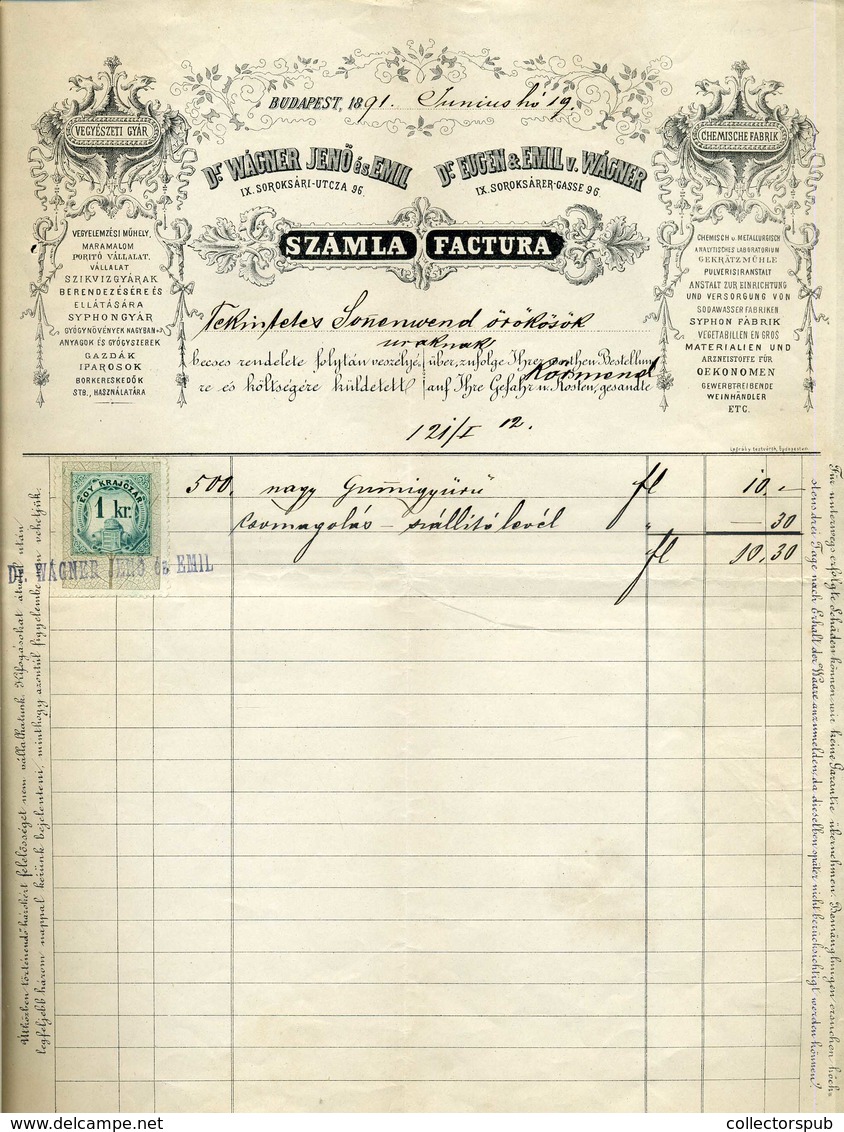 BUDAPEST, 1891. Junius hó 19.
VEGYÉSZETI GYÁR
CHEMISCHE FABRIK
Dr WÁGNER JENŐ és EMIL
IX. SOROKSÁRI-UTCZA 96.
Dr EUGEN & EMIL v. WÁGNER
IX. SOROKSÁRER-GASSE 96.
SZÁMLA FACTURA
VEGYELEMZÉSI MŰHELY,
MARAMALOM
PORITÓ VÁLLALAT.
VÁLLALAT
SZIKVIZGYÁRAK
BERENDEZÉSÉRE ÉS
ELLÁTÁSÁRA
SYPHONGYÁR
GYÓGYNÖVÉNYEK NAGYBAN
ANYAGOK ÉS GYÓGYSZEREK
GAZDÁK
IPAROSOK
BORKERESKEDŐK
STB., HASZNÁLATÁRA
CHEMISCH u. METALLURGISCH
ANALYTISCHES LABORATORIUM
GEKRÄTZMÜHLE
PULVERISIRANSTALT
ANSTALT ZUR EINRICHTUNG
UND VERSORGUNG VON
SODAWASSER FABRIKEN
SYPHON FABRIK
VEGETABILIEN EN GROS
MATERIALIEN UND
ARZNEISTOFFE FÜR
OEKONOMEN
GEWERBTREIBENDE
WEINHÄNDLER
ETC.
Tekintetes Sonenwend örökösök
uraknak
Körmend
becses rendelete folytán veszélyé-
re és költségére küldetett
über, zufolge Ihrer werthen Bestellung
auf Ihre Gefahr u. Kosten, gesandte
121/I 12.
Légrády testvérek, Budapesten.
500. nagy Gumigyürü fl 10.-
Csomagolás - szállitó levél " - 30
fl 10,30
EGY KRAJCZÁR
1 kr.
Dr. WÁGNER JENŐ és EMIL
Útközben történendő károkért felelősséget nem vállalhatunk. Kifogásokat átvétel után
legfeljebb három nappal kérünk bejelenteni, minthogy azontúl figyelembe nem vehetjük.
Für unterwegs erfolgte Schäden können wir keine Garantie übernehmen. Bemänglungen ersuchen höch-
stens drei Tage nach Erhalt der Waare anzumelden, da dieselben später nicht berücksichtigt werden können.
collectorspub